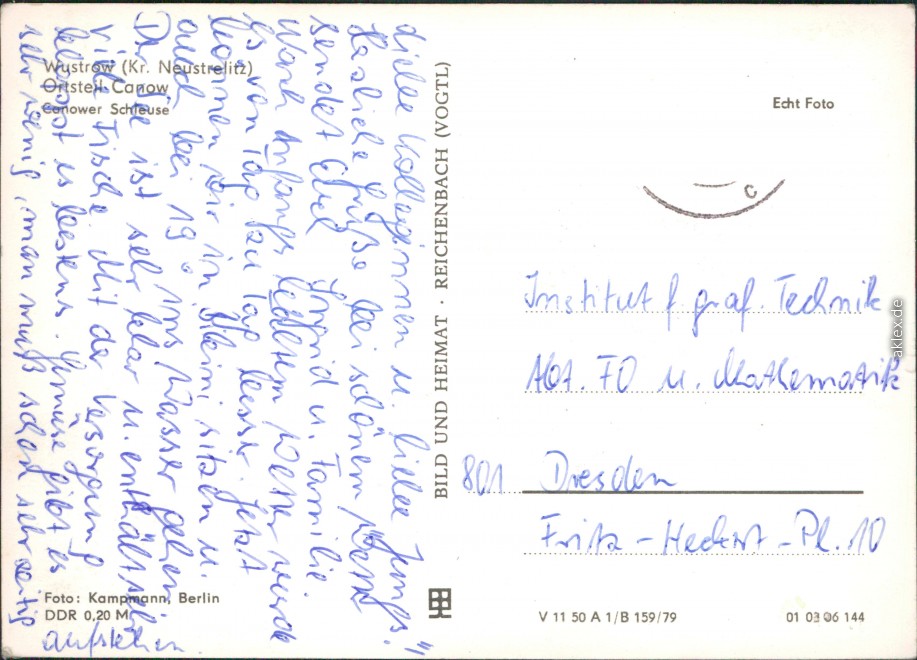 Wustrow (Kr. Neustrelitz)
Ortsteil Canow
Canower Schleuse
Echt Foto
"Liebe Kolleginnen u. liebe Jungs!
Herzliche Grüße bei schönem Wetter
sendet Euch Ingrid u. Familie.
Nach anfangs schlechtem Wetter wurde
es von Tag zu Tag besser. Jetzt
können wir im Bikini sitzen u.
auch bei 19° ins Wasser gehen.
Der See ist sehr klar u. enthält sehr
viele Fische. Mit der Versorgung
klappt es bestens. Gemüse gibt es
sehr wenig, man muß schon sehr zeitig
aufstehen.
BILD UND HEIMAT · REICHENBACH (VOGTL)
Institut f. graf. Technik
Abt. FO u. Mathematik
801 Dresden
Fritz-Heckert-Pl. 10
Foto: Kampmann, Berlin
DDR 0,20 M
V 11 50 A 1/B 159/79
01 03 06 144
aklex.de